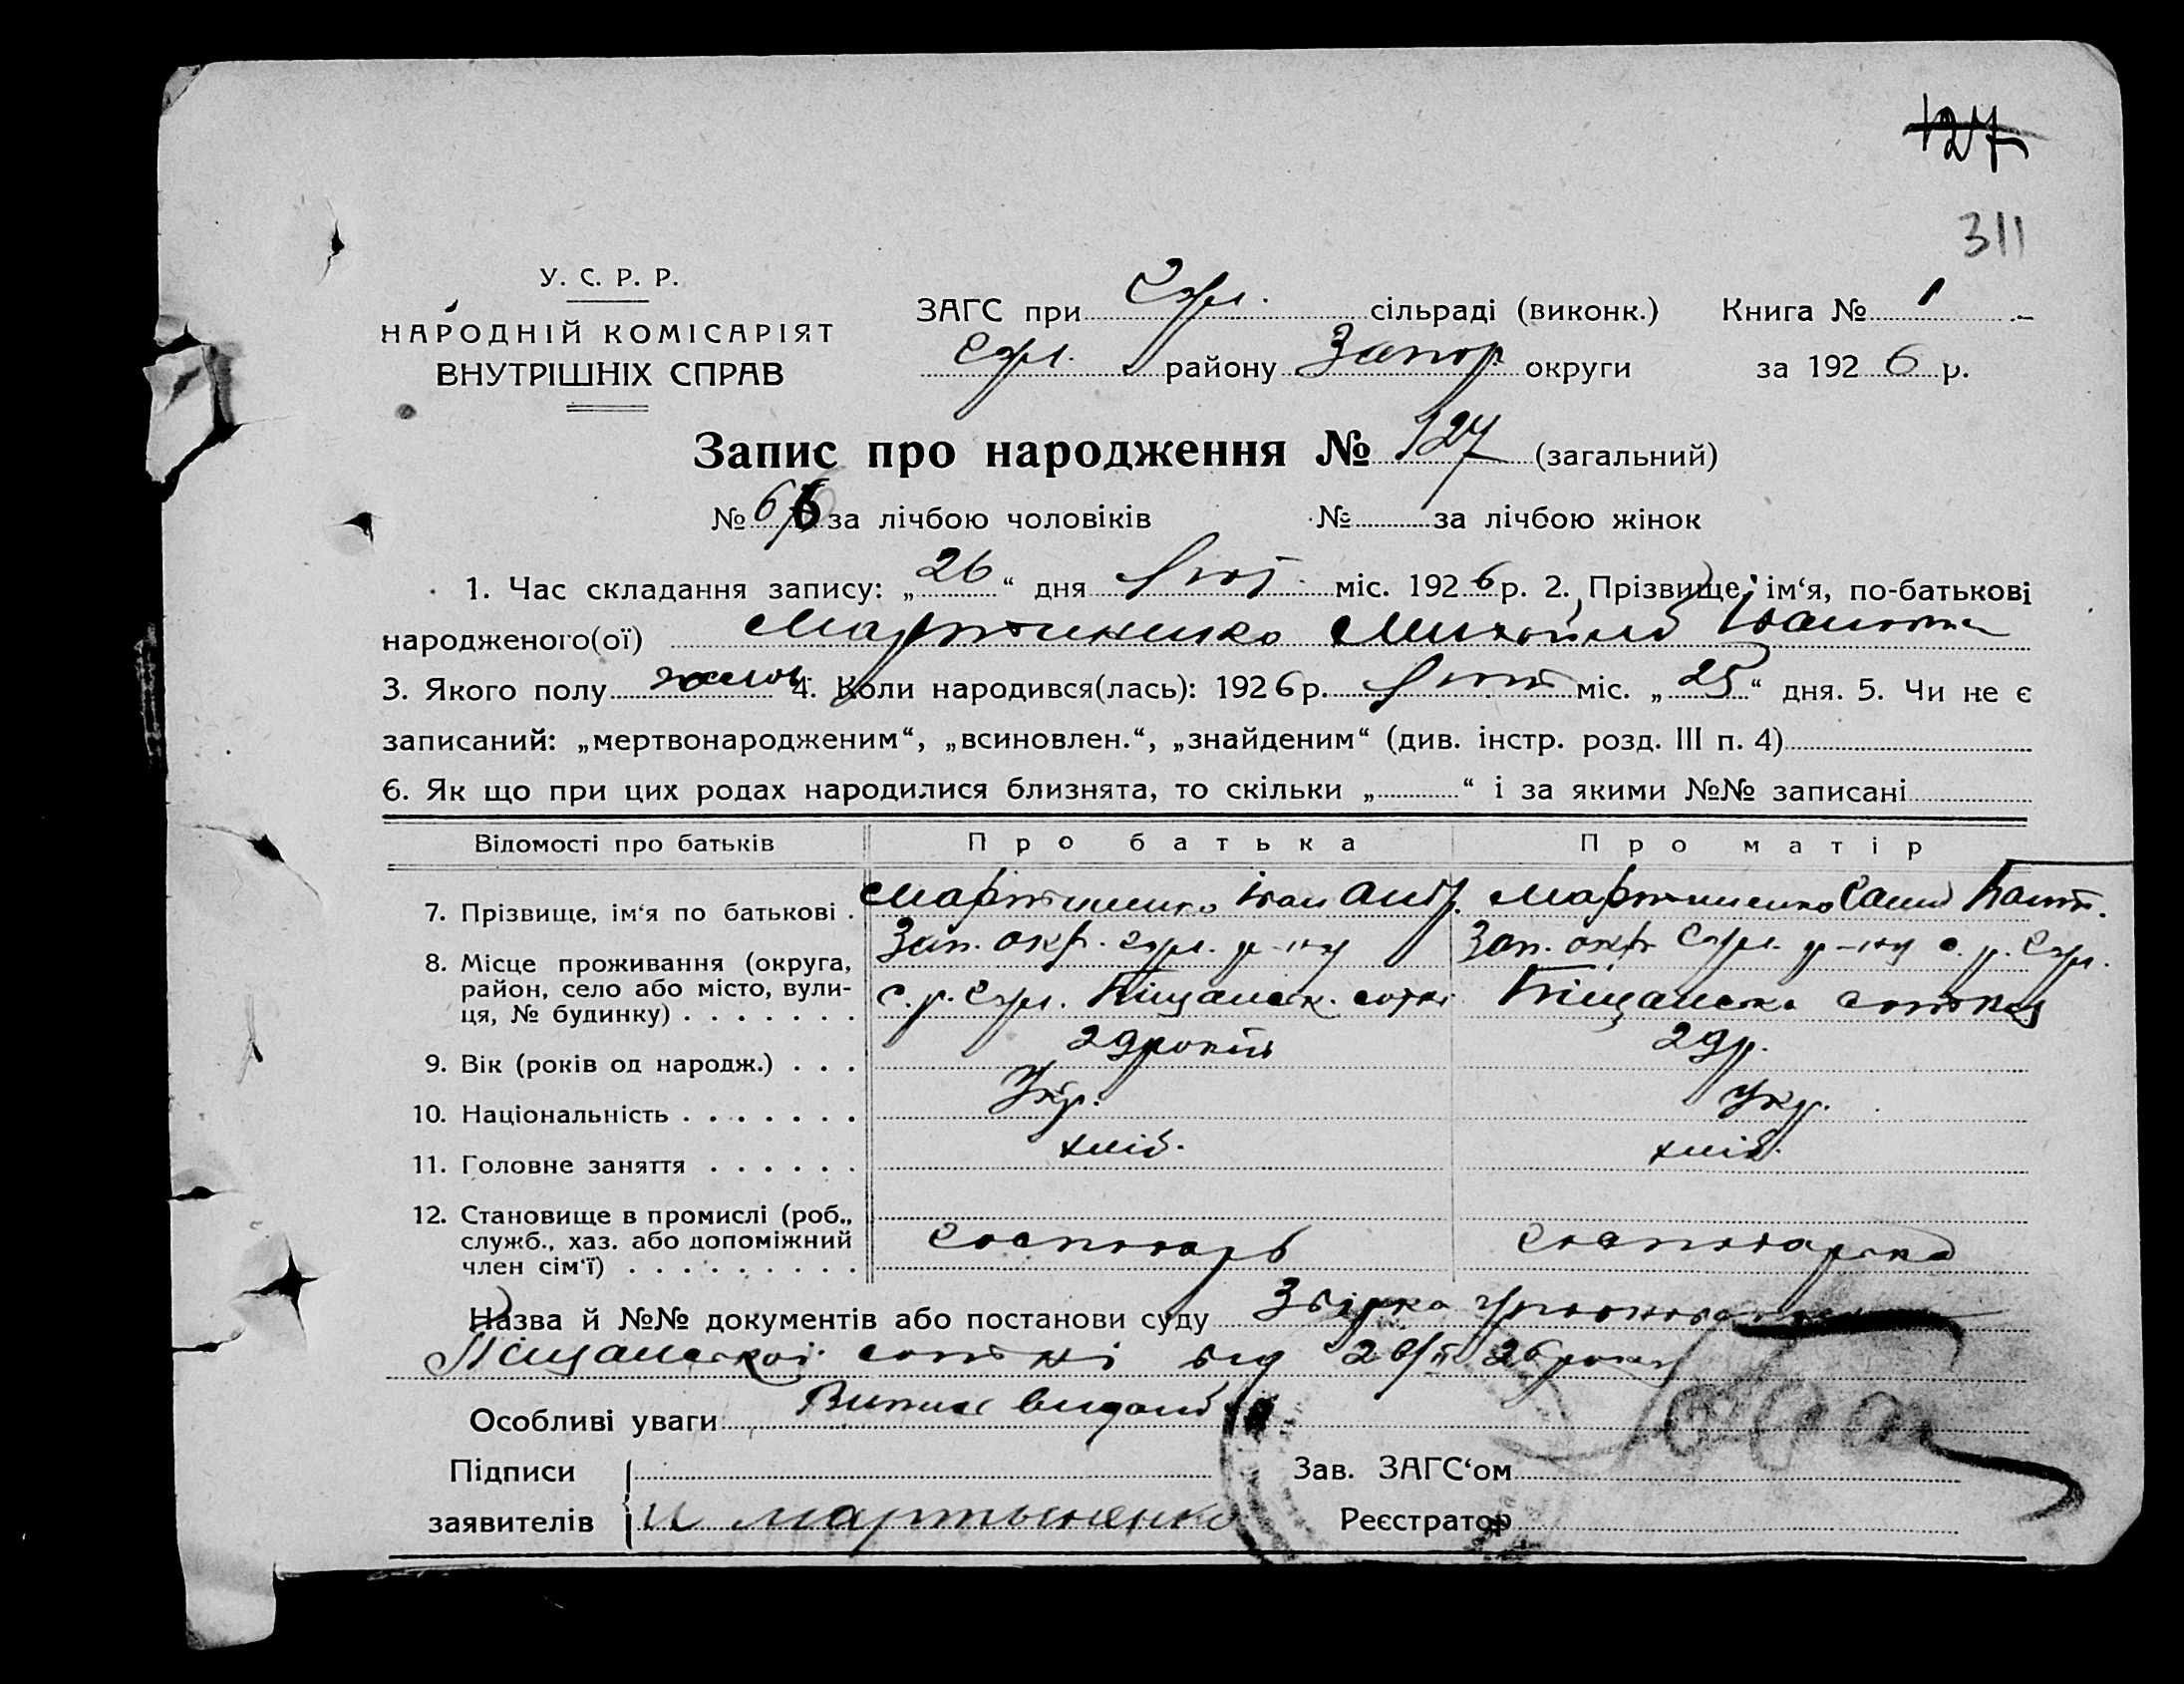 127
311
У. С. Р. Р.
НАРОДНІЙ КОМІСАРІЯТ
ВНУТРІШНІХ СПРАВ
ЗАГС при сільраді (виконк.) Книга № 1
району Запор. округи за 1926 р.
Запис про народження № 127 (загальний)
№ 66 за лічбою чоловіків № за лічбою жінок
1. Час складання запису: „26“ дня лют. міс. 1926 р. 2. Прізвище, ім‘я, по-батькові
народженого(ої) Мартиненко Михайло Іванович
3. Якого полу 4. Коли народився(лась): 1926 р. лют міс. „25“ дня. 5. Чи не є
записаний: „мертвонародженим“, „всиновлен.“, „знайденим“ (див. інстр. розд. III п. 4)
6. Як що при цих родах народилися близнята, то скільки „ “ і за якими №№ записані
Відомості про батьків Про батька Про матір
7. Прізвище, ім‘я по батькові . Мартиненко Іван Мартиненко
8. Місце проживання (округа, Зап. окр. р-ну Зап. окр р-ну с. р.
район, село або місто, вули- с. р. Піщанск. сотні Піщанска сотня
ця, № будинку) . . . . . . .
9. Вік (років од народж.) . . . 29 років 29 р.
10. Національність . . . . . . . Укр. Укр.
11. Головне заняття . . . . . . хліб. хліб.
12. Становище в промислі (роб.,
служб., хаз. або допоміжний Господарь Господарка
член сім‘ї) . . . . . . . . .
Назва й №№ документів або постанови суду Звірка
Піщанскої сотні від 26/II 26 року
Особливі уваги Випис видано
Підписи Зав. ЗАГС‘ом
заявителів И мартыненко Реєстратор